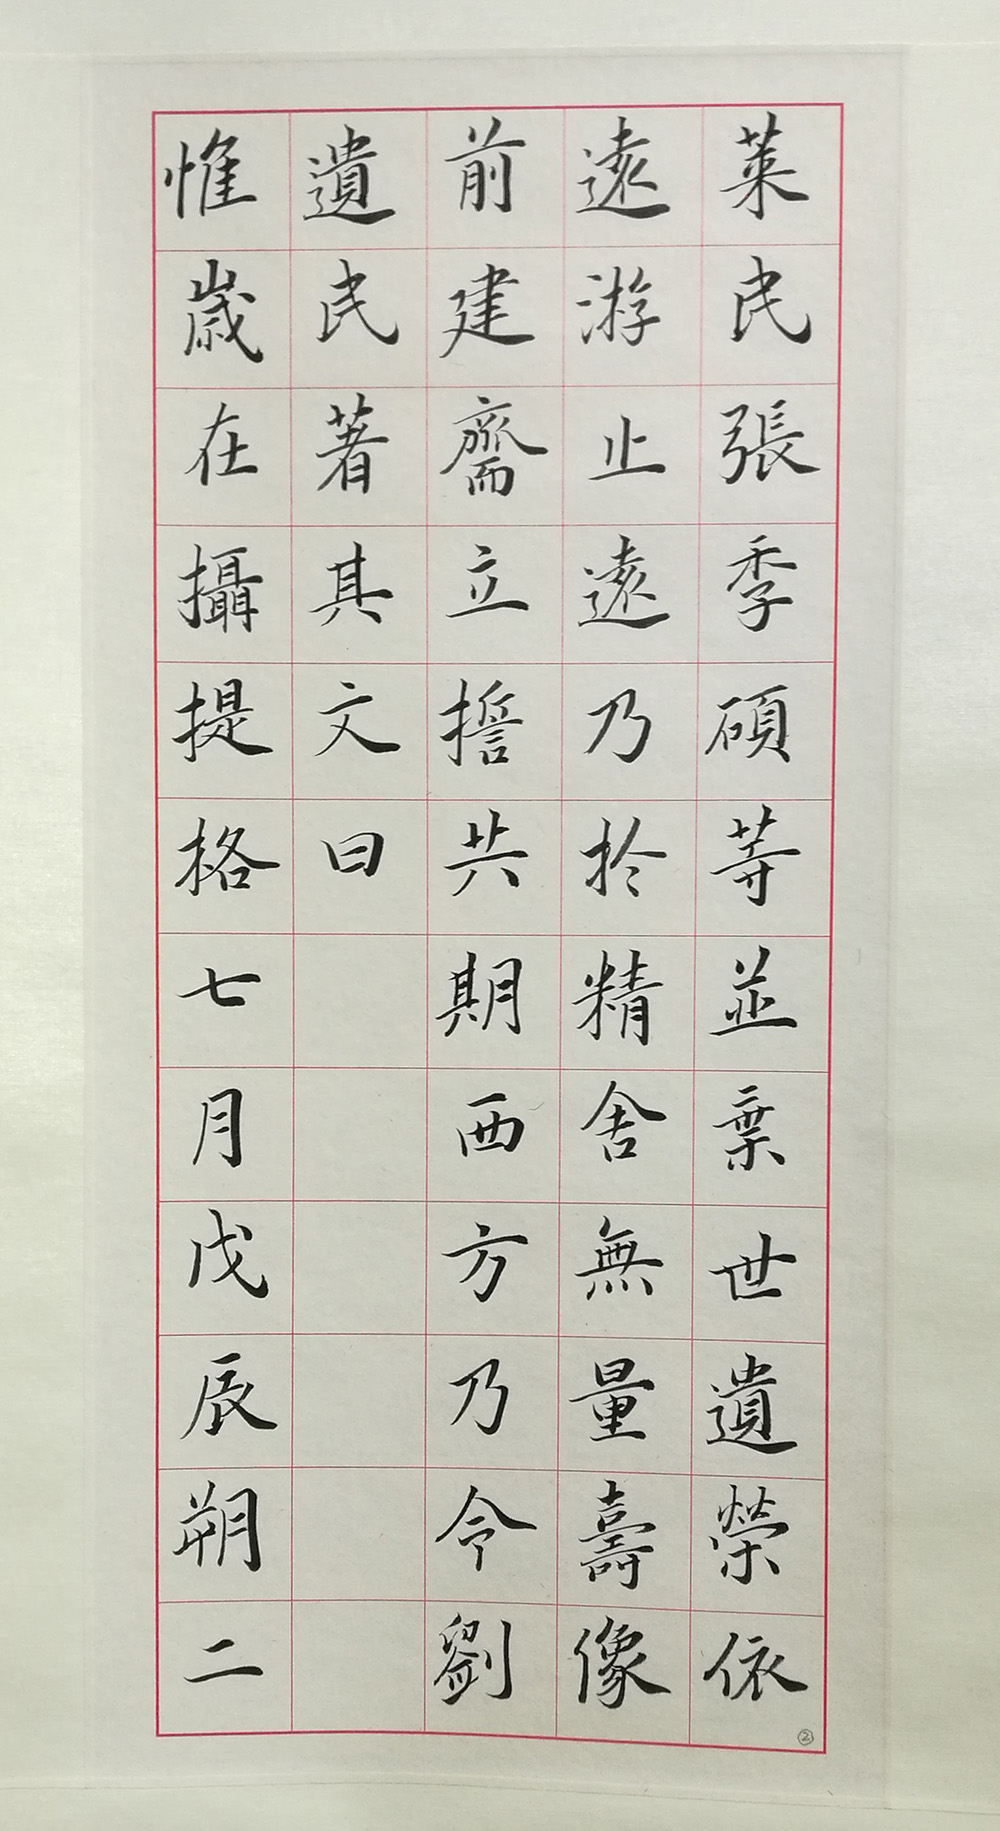 萊民張季碩等並棄世遺榮依
遠游止遠乃於精舍無量壽像
前建齋立誓共期西方乃令劉
遺民著其文曰
惟歲在攝提格七月戊辰朔二
②